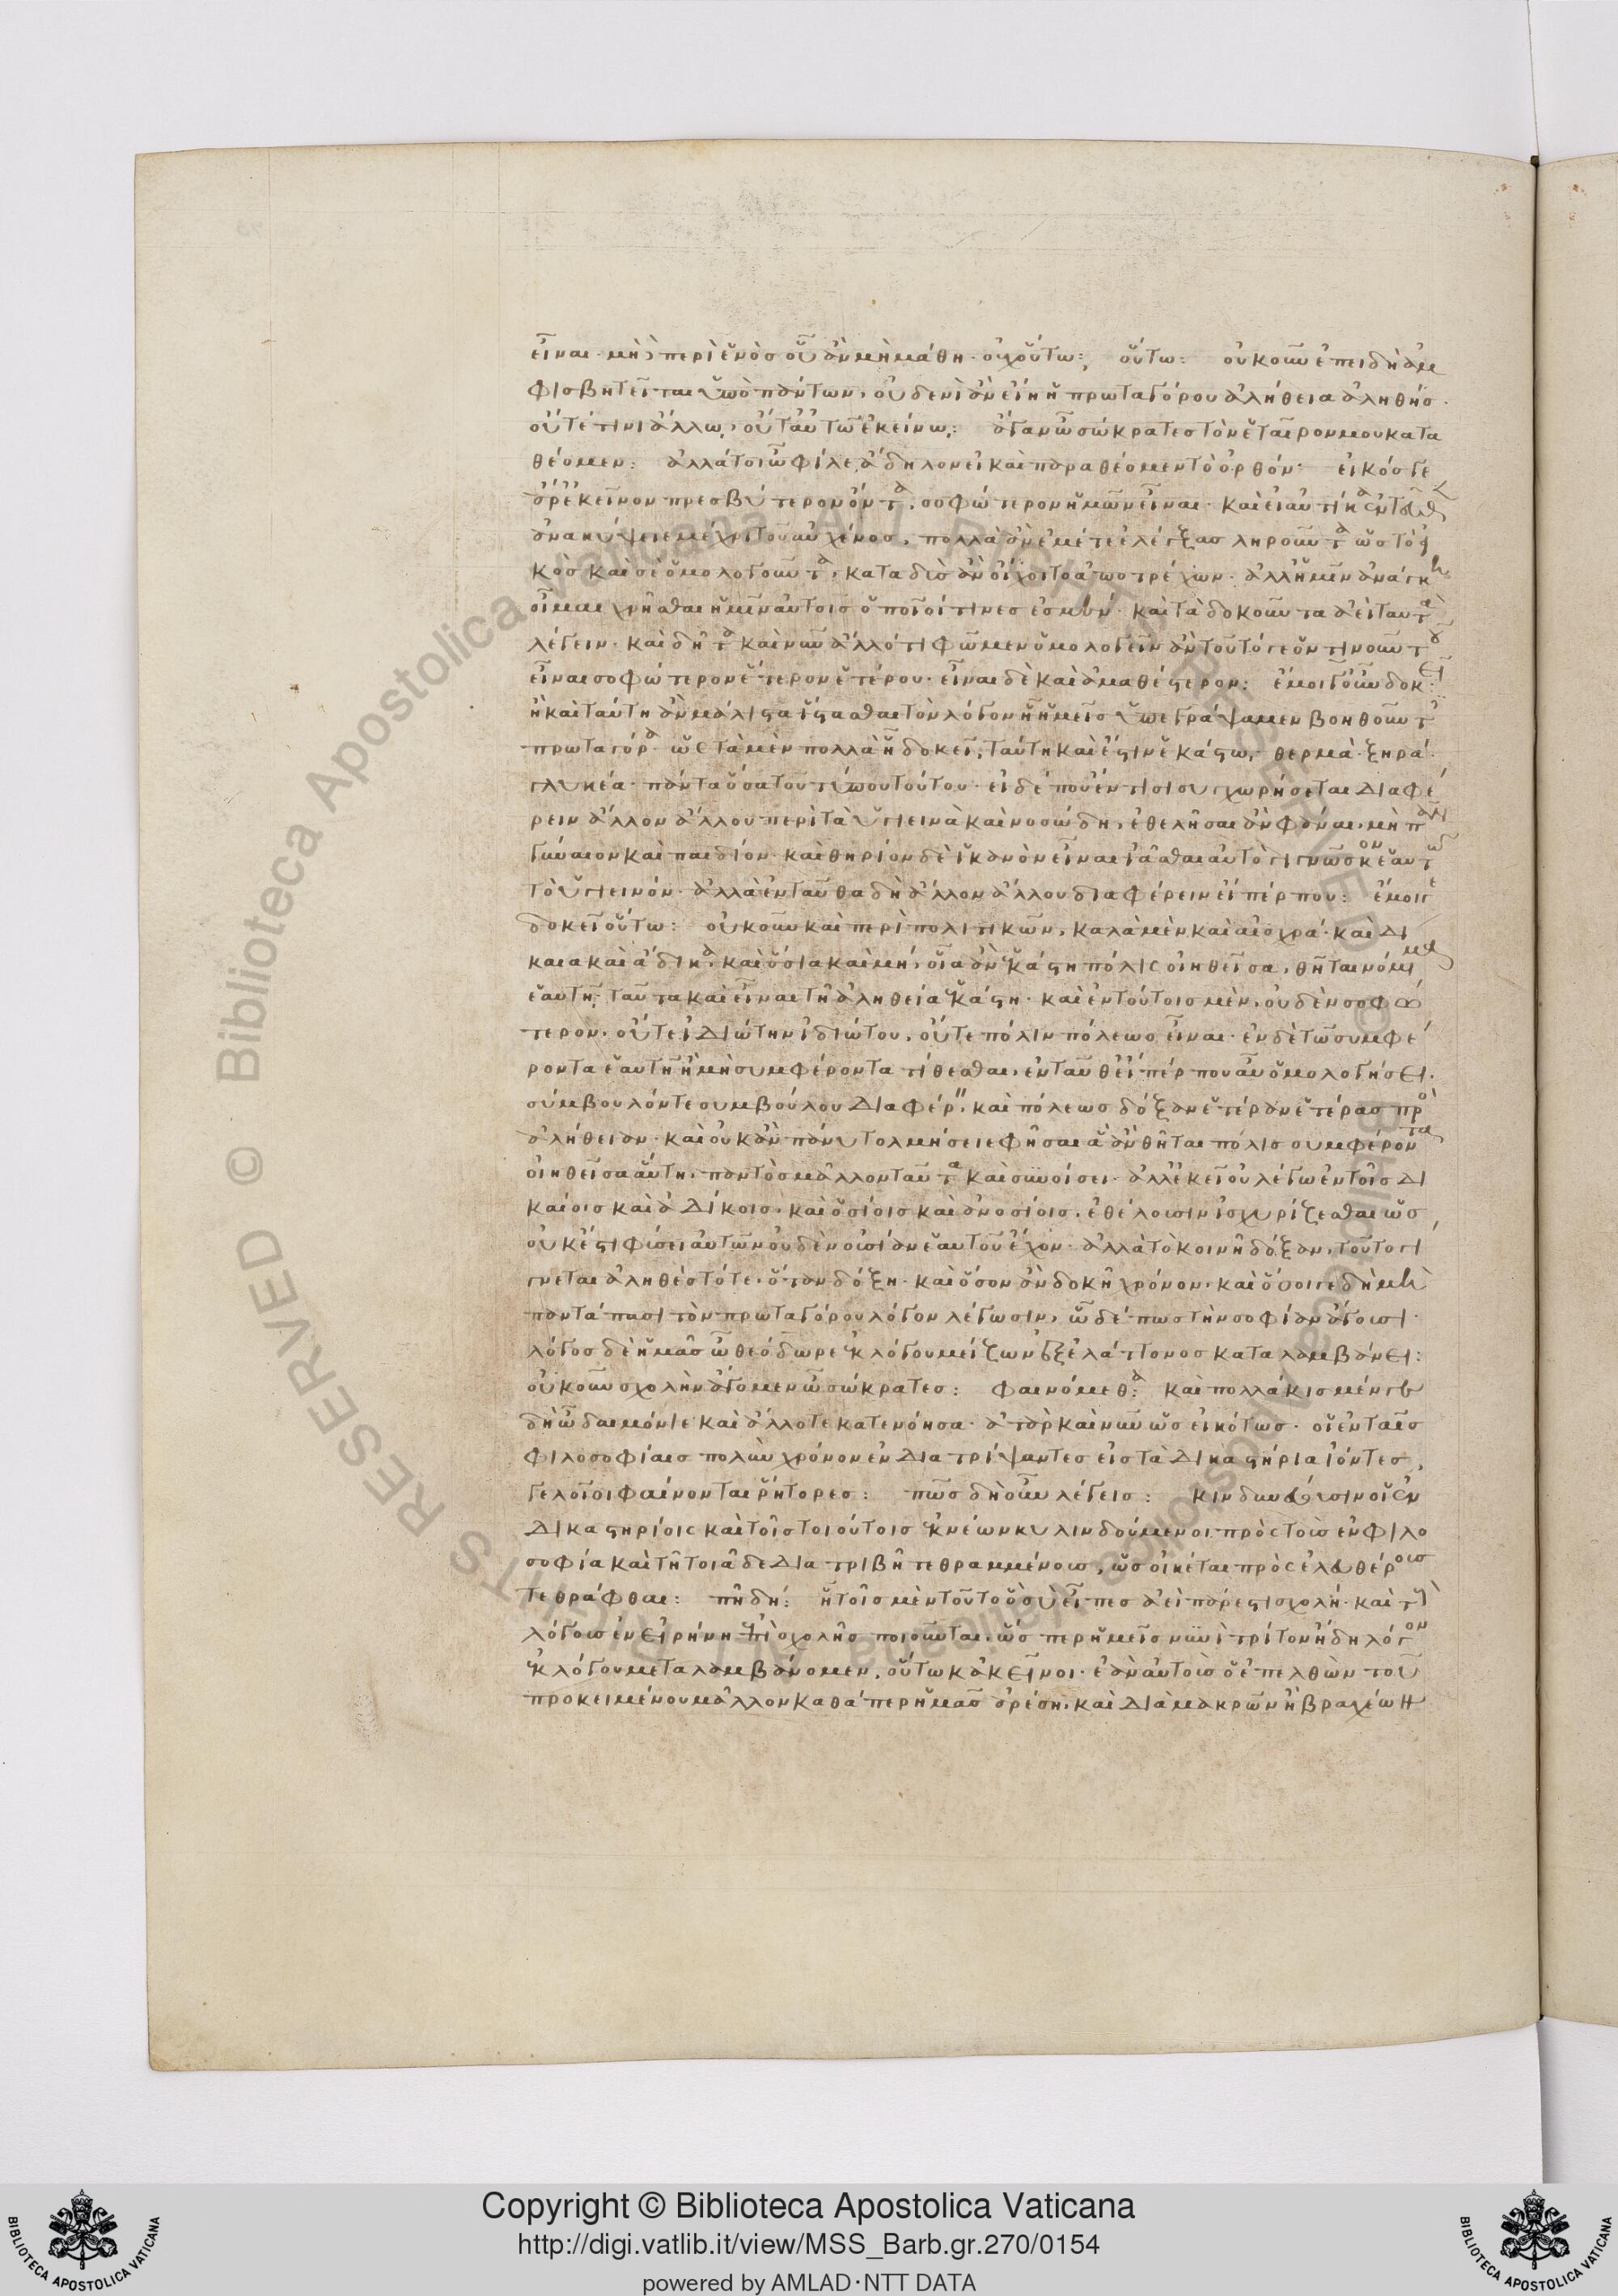 εἶναι· μὴ περὶ ἑνὸς οὗ ἂν μὴ μάθη· οὐχ οὕτω; οὕτω: οὐκοῦν ἐπειδὴ ἀμ
φισβητεῖται ὑπὸ πάντων, οὐδενὶ ἂν εἴη ἡ πρωταγόρου ἀλήθεια ἀληθής·
οὔτέ τινι ἄλλω, οὔτ' αὐτῶ ἐκείνω: ἄγαν ὦ σώκρατες τὸν ἑταῖρον μου κατα
θέομεν: ἀλλά τοι ὦ φίλε ἄδηλον εἰ καὶ παραθέομεν τὸ ὀρθόν· εἰκός γε
ἄρ' ἐκεῖνον πρεσβύτερον ὄντα, σοφώτερον ἡμῶν εἶναι· καὶ εἰ αὐτίκα ἐντεῦθεν
ἀνακύψειε μέχρι τοῦ αὐχένος, πολλὰ ἂν ἐμέ τε ἐλέγξας ληροῦντα ὡς τὸ εἰ
κὸς καὶ σὲ ὁμολογοῦντα, καταδὺς ἂν οἴχοιτο ἀποτρέχων· ἀλλ' ἡμῖν ἀνάγκη
οἶμαι χρῆσθαι ἡμῖν αὐτοῖς ὁποῖοί τινες ἐσμέν· καὶ τὰ δοκοῦντα ἀεὶ ταῦτα
λέγειν· καὶ δῆτα καὶ νῦν ἄλλό τι φῶμεν ὁμολογεῖν ἂν τοῦτό γε ὁντινοῦν τοῦ
εἶναι σοφώτερον ἕτερον ἑτέρου· εἶναι δὲ καὶ ἀμαθέστερον: ἐμοὶ γοῦν δοκεῖ·
ἦ καὶ ταύτη ἂν μάλιστα ἵστασθαι τὸν λόγον ἧ ἡμεῖς ὑπεγράψαμεν βοηθοῦντες
πρωταγόρα· ὡς τὰ μὲν πολλὰ ἧ δοκεῖ, ταύτη καὶ ἔστιν ἑκάστω, θερμὰ· ξηρά·
γλυκέα· πάντα ὅσα τοῦ τύπου τούτου· εἰ δέ που ἔν τισι συγχωρήσεται διαφέ
ρειν ἄλλον ἄλλου περὶ τὰ ὑγιεινὰ καὶ νοσώδη, ἐθελῆσαι ἂν φάναι, μὴ πᾶν
γύναιον καὶ παιδίον· καὶ θηρίον δὲ ἱκανὸν εἶναι ἰᾶσθαι αὐτὸ γιγνῶσκον ἑαυτῶ
τὸ ὑγιεινόν· ἀλλὰ ἐνταῦθα δὴ ἄλλον ἄλλου διαφέρειν εἴπέρ που: ἔμοιγε
δοκεῖ οὕτω: οὐκοῦν καὶ περὶ πολιτικῶν, καλὰ μὲν καὶ αἰσχρά· καὶ δί
καια καὶ ἄδικα, καὶ ὅσια καὶ μή, οἷα ἂν ἑκάστη πόλις οἰηθεῖσα, θῆται νόμιμα
ἑαυτῆ, ταῦτα καὶ εἶναι τῆ ἀληθεία ἑκάστη· καὶ ἐν τούτοις μὲν, οὐδὲν σοφώ
τερον· οὔτε ἰδιώτην ἰδιώτου, οὔτε πόλιν πόλεως εἶναι· ἐν δὲ τῶ συμφέ
ροντα ἑαυτῆ ἢ μὴ συμφέροντα τίθεσθαι, ἐνταῦθ' εἴπέρ που αὖ ὁμολογήσει·
σύμβουλόν τε συμβούλου διαφέρειν, καὶ πόλεως δόξαν ἑτέραν ἑτέρας πρὸς
ἀλήθειαν· καὶ οὐκ ἂν πάνυ τολμήσειε φῆσαι ἃ ἂν θῆται πόλις συμφέροντα
οἰηθεῖσα αὑτῆ, παντὸς μᾶλλον ταῦτα καὶ συνοίσειν· ἀλλ' ἐκεῖ οὗ λέγω ἐν τοῖς δι
καίοις καὶ ἀδίκοις, καὶ ὁσίοις καὶ ἀνοσίοις, ἐθέλουσιν ἰσχυρίζεσθαι ὡς
οὐκ ἔστι φύσει αὐτῶν οὐδὲν οὐσίαν ἑαυτοῦ ἔχον· ἀλλὰ τὸ κοινῆ δόξαν, τοῦτο γί
γνεται ἀληθὲς τότε, ὅταν δόξη· καὶ ὅσον ἂν δοκῆ χρόνον, καὶ ὅσοι γε δὴ μὴ
παντάπασι τὸν πρωταγόρου λόγον λέγωσιν, ὧδέ πως τὴν σοφίαν ἄγουσι·
λόγος δὲ ἡμᾶς ὦ θεόδωρε ἐκ λόγου μείζων ἐξ ἐλάττονος καταλαμβάνει:
οὐκοῦν σχολὴν ἄγομεν ὦ σώκρατες: φαινόμεθα: καὶ πολλάκις μέν γε
δὴ ὦ δαιμόνιε καὶ ἄλλοτε κατενόησα· ἀτὰρ καὶ νῦν ὡς εἰκότως· οἱ ἐν ταῖς
φιλοσοφίαις πολὺν χρόνον ἐνδιατρίψαντες εἰς τὰ δικαστήρια ἰόντες,
γελοῖοι φαίνονται ῥήτορες: πῶς δὴ οὖν λέγεις: κινδυνεύουσιν οἱ ἐν
δικαστηρίοις καὶ τοῖς τοιούτοις ἐκ νέων κυλινδούμενοι πρὸς τοὺς ἐν φιλο
σοφία καὶ τῆ τοιᾶδε διατριβῆ τεθραμμένους, ὡς οἰκέται πρὸς ἐλευθέρους
τεθράφθαι: πῆ δή: ἧ τοῖς μὲν τοῦτο ὃ σὺ εἶπες ἀεὶ πάρεστι σχολή· καὶ τοὺς
λόγους ἐν εἰρήνη ἐπὶ σχολῆς ποιοῦνται, ὥσπερ ἡμεῖς νυνὶ τρίτον ἤδη λόγον
ἐκ λόγου μεταλαμβάνομεν, οὕτω κἀκεῖνοι· ἐὰν αὐτοὺς ὁ ἐπελθὼν τοῦ
προκειμένου μᾶλλον καθάπερ ἡμᾶς ἀρέση, καὶ διὰ μακρῶν ἢ βραχέων
Copyright © Biblioteca Apostolica Vaticana
http://digi.vatlib.it/view/MSS_Barb.gr.270/0154
powered by AMLAD·NTT DATA